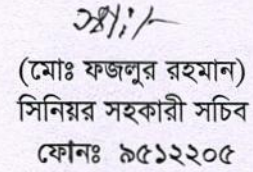 স্বাঃ/-
(মোঃ ফজলুর রহমান)
সিনিয়র সহকারী সচিব
ফোনঃ ৯৫১২২০৫